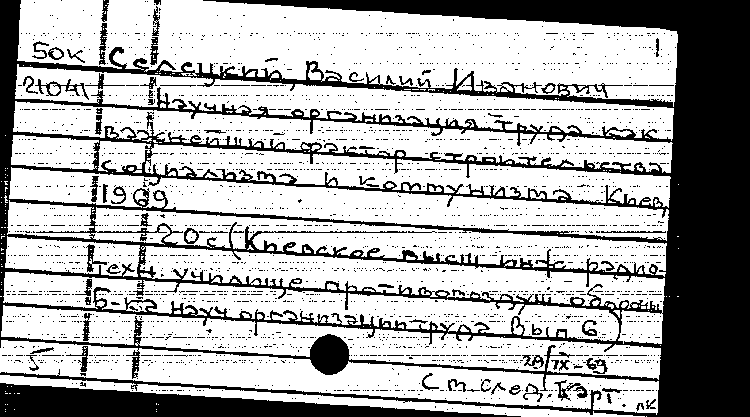 1
50к Селецкий, Василий Иванович
21041 Научная организация труда как
важнейший фактор строительства
социализма и коммунизма Киев,
1969
20с (Киевское высш инж радио-
техн. училище противовоздуш обороны
Б-ка науч организации труда Вып 6)
28/IX-69
5 См. след. карт. лк